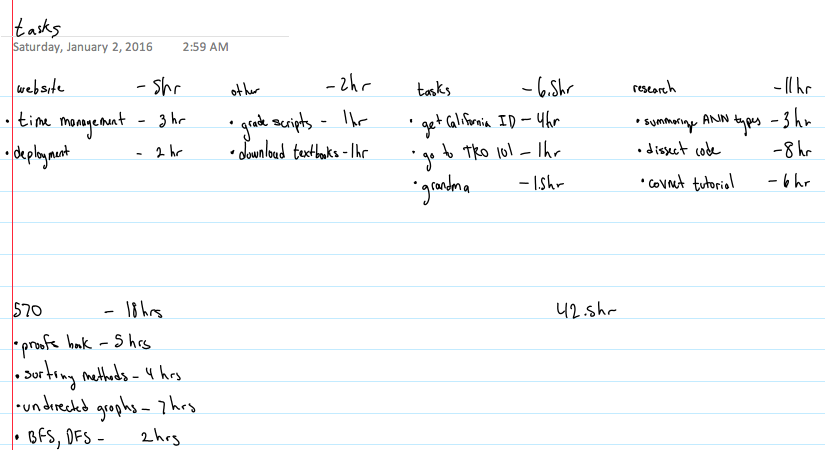 tasks
Saturday, January 2, 2016 2:59 AM
website - 5hr
• time management - 3 hr
• deployment - 2 hr
other - 2hr
• grade scripts - 1hr
• download textbooks - 1hr
tasks - 6.5hr
• get California ID - 4hr
• go to TRO 101 - 1hr
• grandma - 1.5hr
research - 11hr
• summarize ANN types - 3 hr
• dissect code - 8hr
• covnet tutorial - 6hr
570 - 18hrs
• proofs book - 5 hrs
• sorting methods - 4 hrs
• undirected graphs - 7hrs
• BFS, DFS - 2hrs
42.5hr